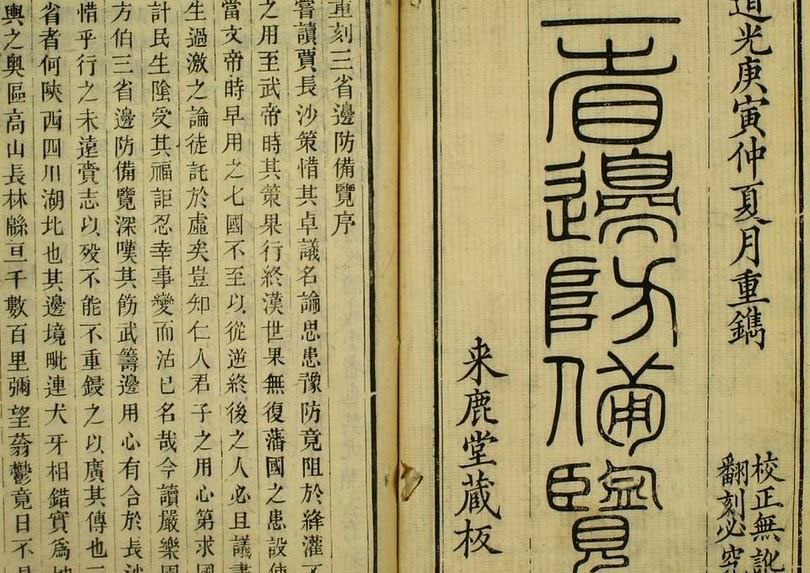 道光庚寅仲夏月重鐫
校正無訛
翻刻必究
三省邊防備覽
来鹿堂藏板
重刻三省邊防備覽序
嘗讀賈長沙策惜其卓議名論思患豫防竟阻於絳灌
之用至武帝時其策果行終漢世果無復藩國之患設使
當文帝時早用之七國不至以從逆終後之人必且議
生過激之論徒託於虛矣豈知仁人君子之用心第求
計民生陰受其福詎忍幸事變而沽已名哉今讀嚴樂園
方伯三省邊防備覽深嘆其飭武籌邊用心有合於長沙
惜乎行之未遠賫志以歿不能不重鋟之以廣其傳也
省者何陝西四川湖北也其邊境毗連犬牙相錯實為
輿之奧區高山長林緜亘千數百里彌望蓊鬱竟日不